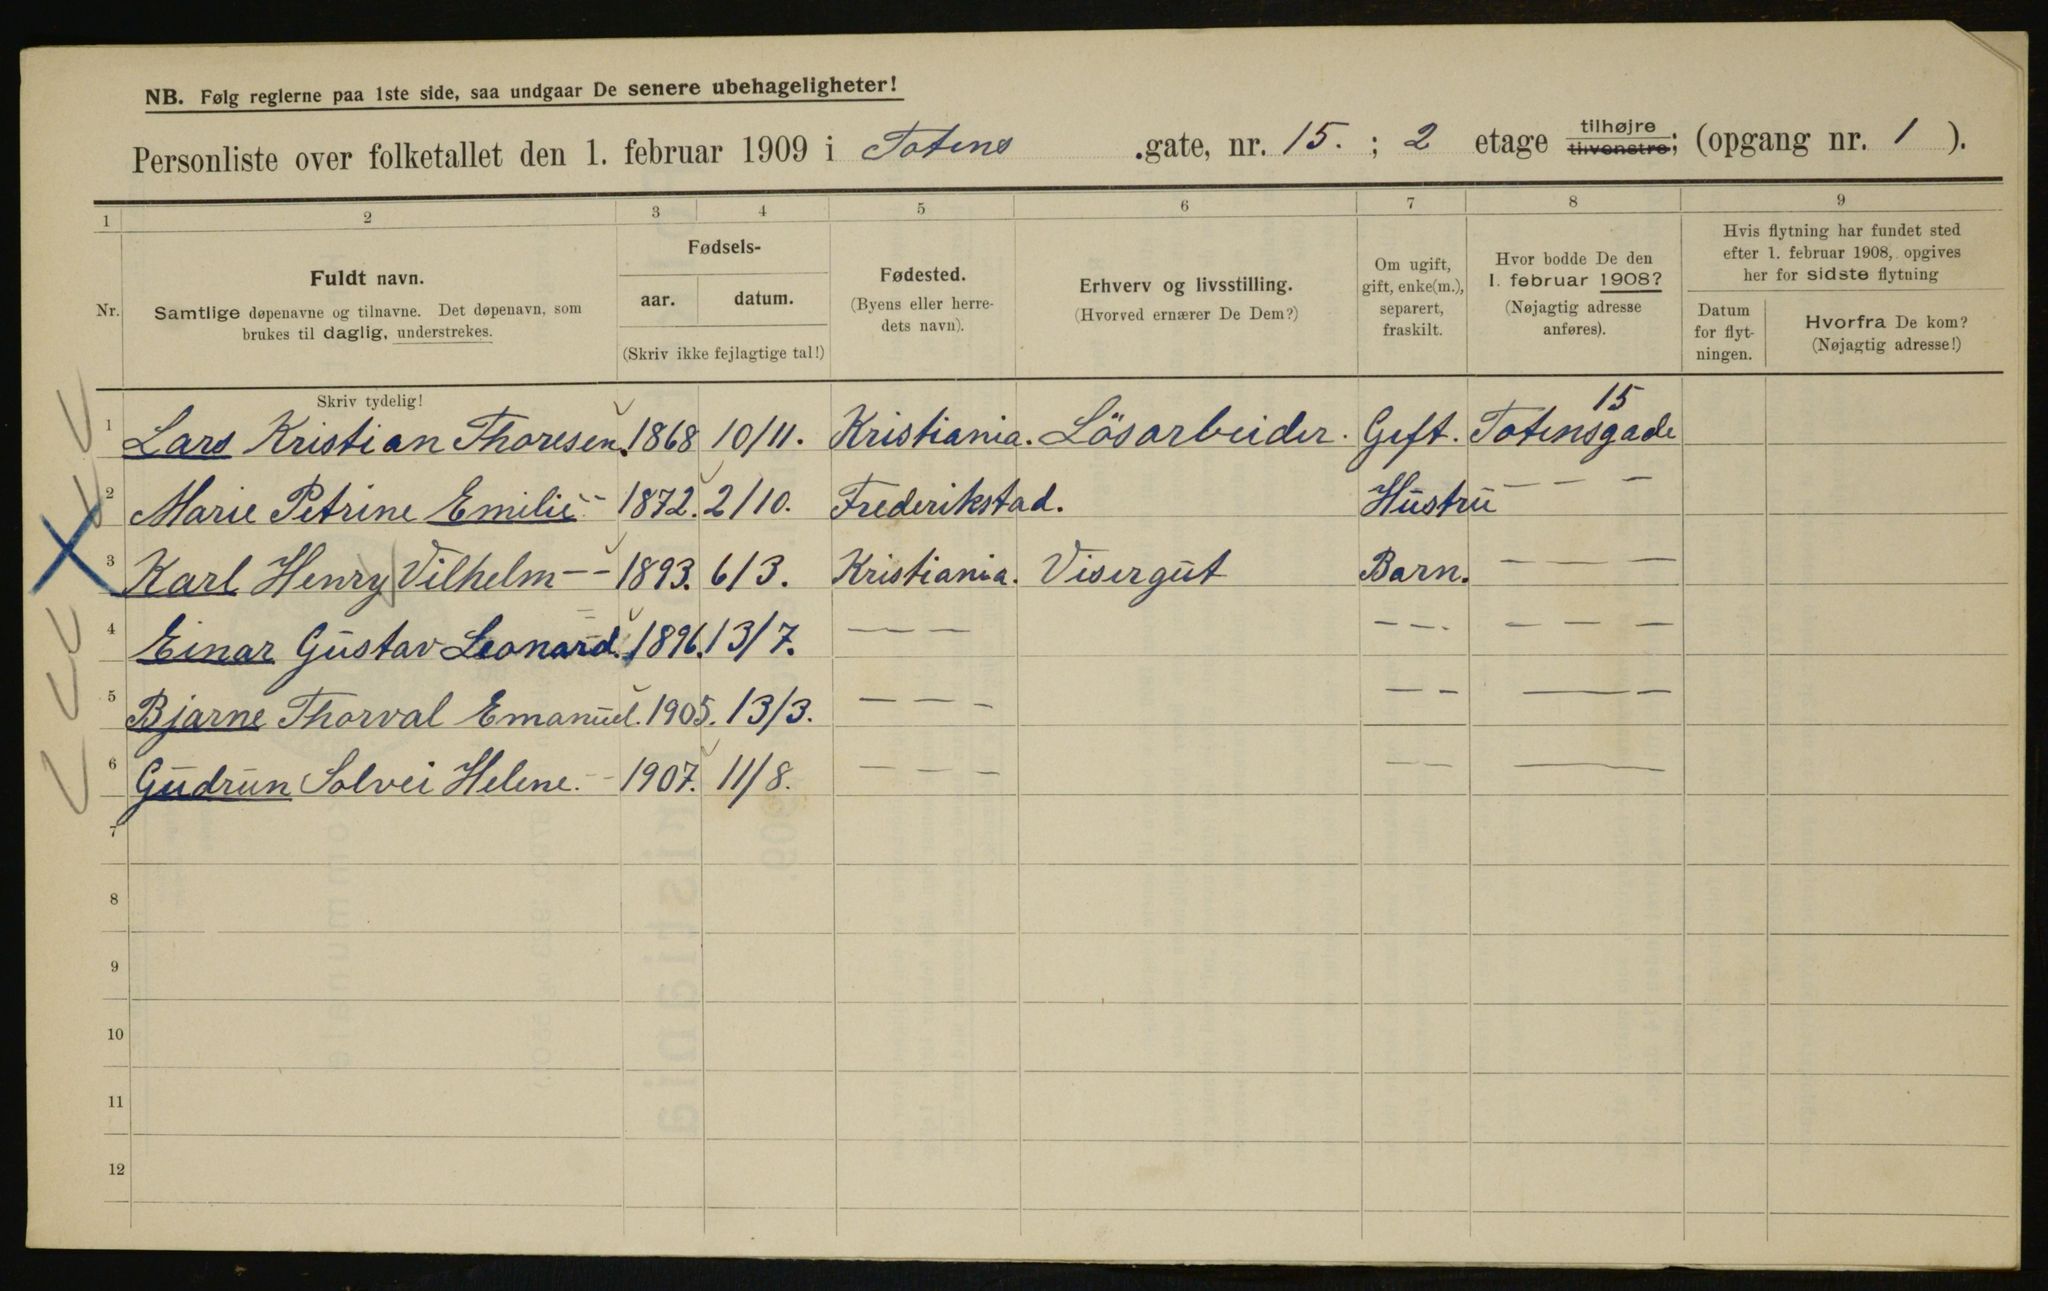 NB. Følg reglerne paa 1ste side, saa undgaar De senere ubehageligheter!
Personliste over folketallet den 1. februar 1909 i Totens .gate, nr. 15. ; 2 etage tilhøjre tilvenstre; (opgang nr. 1 ).
1 2 3 4 5 6 7 8 9
Nr.
Fuldt navn.
Samtlige døpenavne og tilnavne. Det døpenavn, som
brukes til daglig, understrekes.
Fødsels-
aar. datum.
(Skriv ikke fejlagtige tal!)
Fødested.
(Byens eller herre-
dets navn).
Erhverv og livsstilling.
(Hvorved ernærer De Dem?)
Om ugift,
gift, enke(m.),
separert,
fraskilt.
Hvor bodde De den
1. februar 1908?
(Nøjagtig adresse
anføres).
Hvis flytning har fundet sted
efter 1. februar 1908, opgives
her for sidste flytning
Datum
for flyt-
ningen.
Hvorfra De kom?
(Nøjagtig adresse!)
Skriv tydelig!
15
1 Lars Kristian Thoresen. 1868 10/11. Kristiania. Lösarbeider. Gift. Totensgade
2 Marie Petrine Emilie -- 1872. 2/10. Frederikstad. Hustru — — —
3 Karl Henry Vilhelm -- 1893. 6/3. Kristiania. Visergut Barn. — — —
4 Einar Gustav Leonard. 1896. 13/7. — — — — — — — — —
5 Bjarne Thorval Emanuel. 1905. 13/3. — — — — — — —
6 Gudrun Solvei Helene. -- 1907. 11/8. — — — — — —
7
8
9
10
11
12